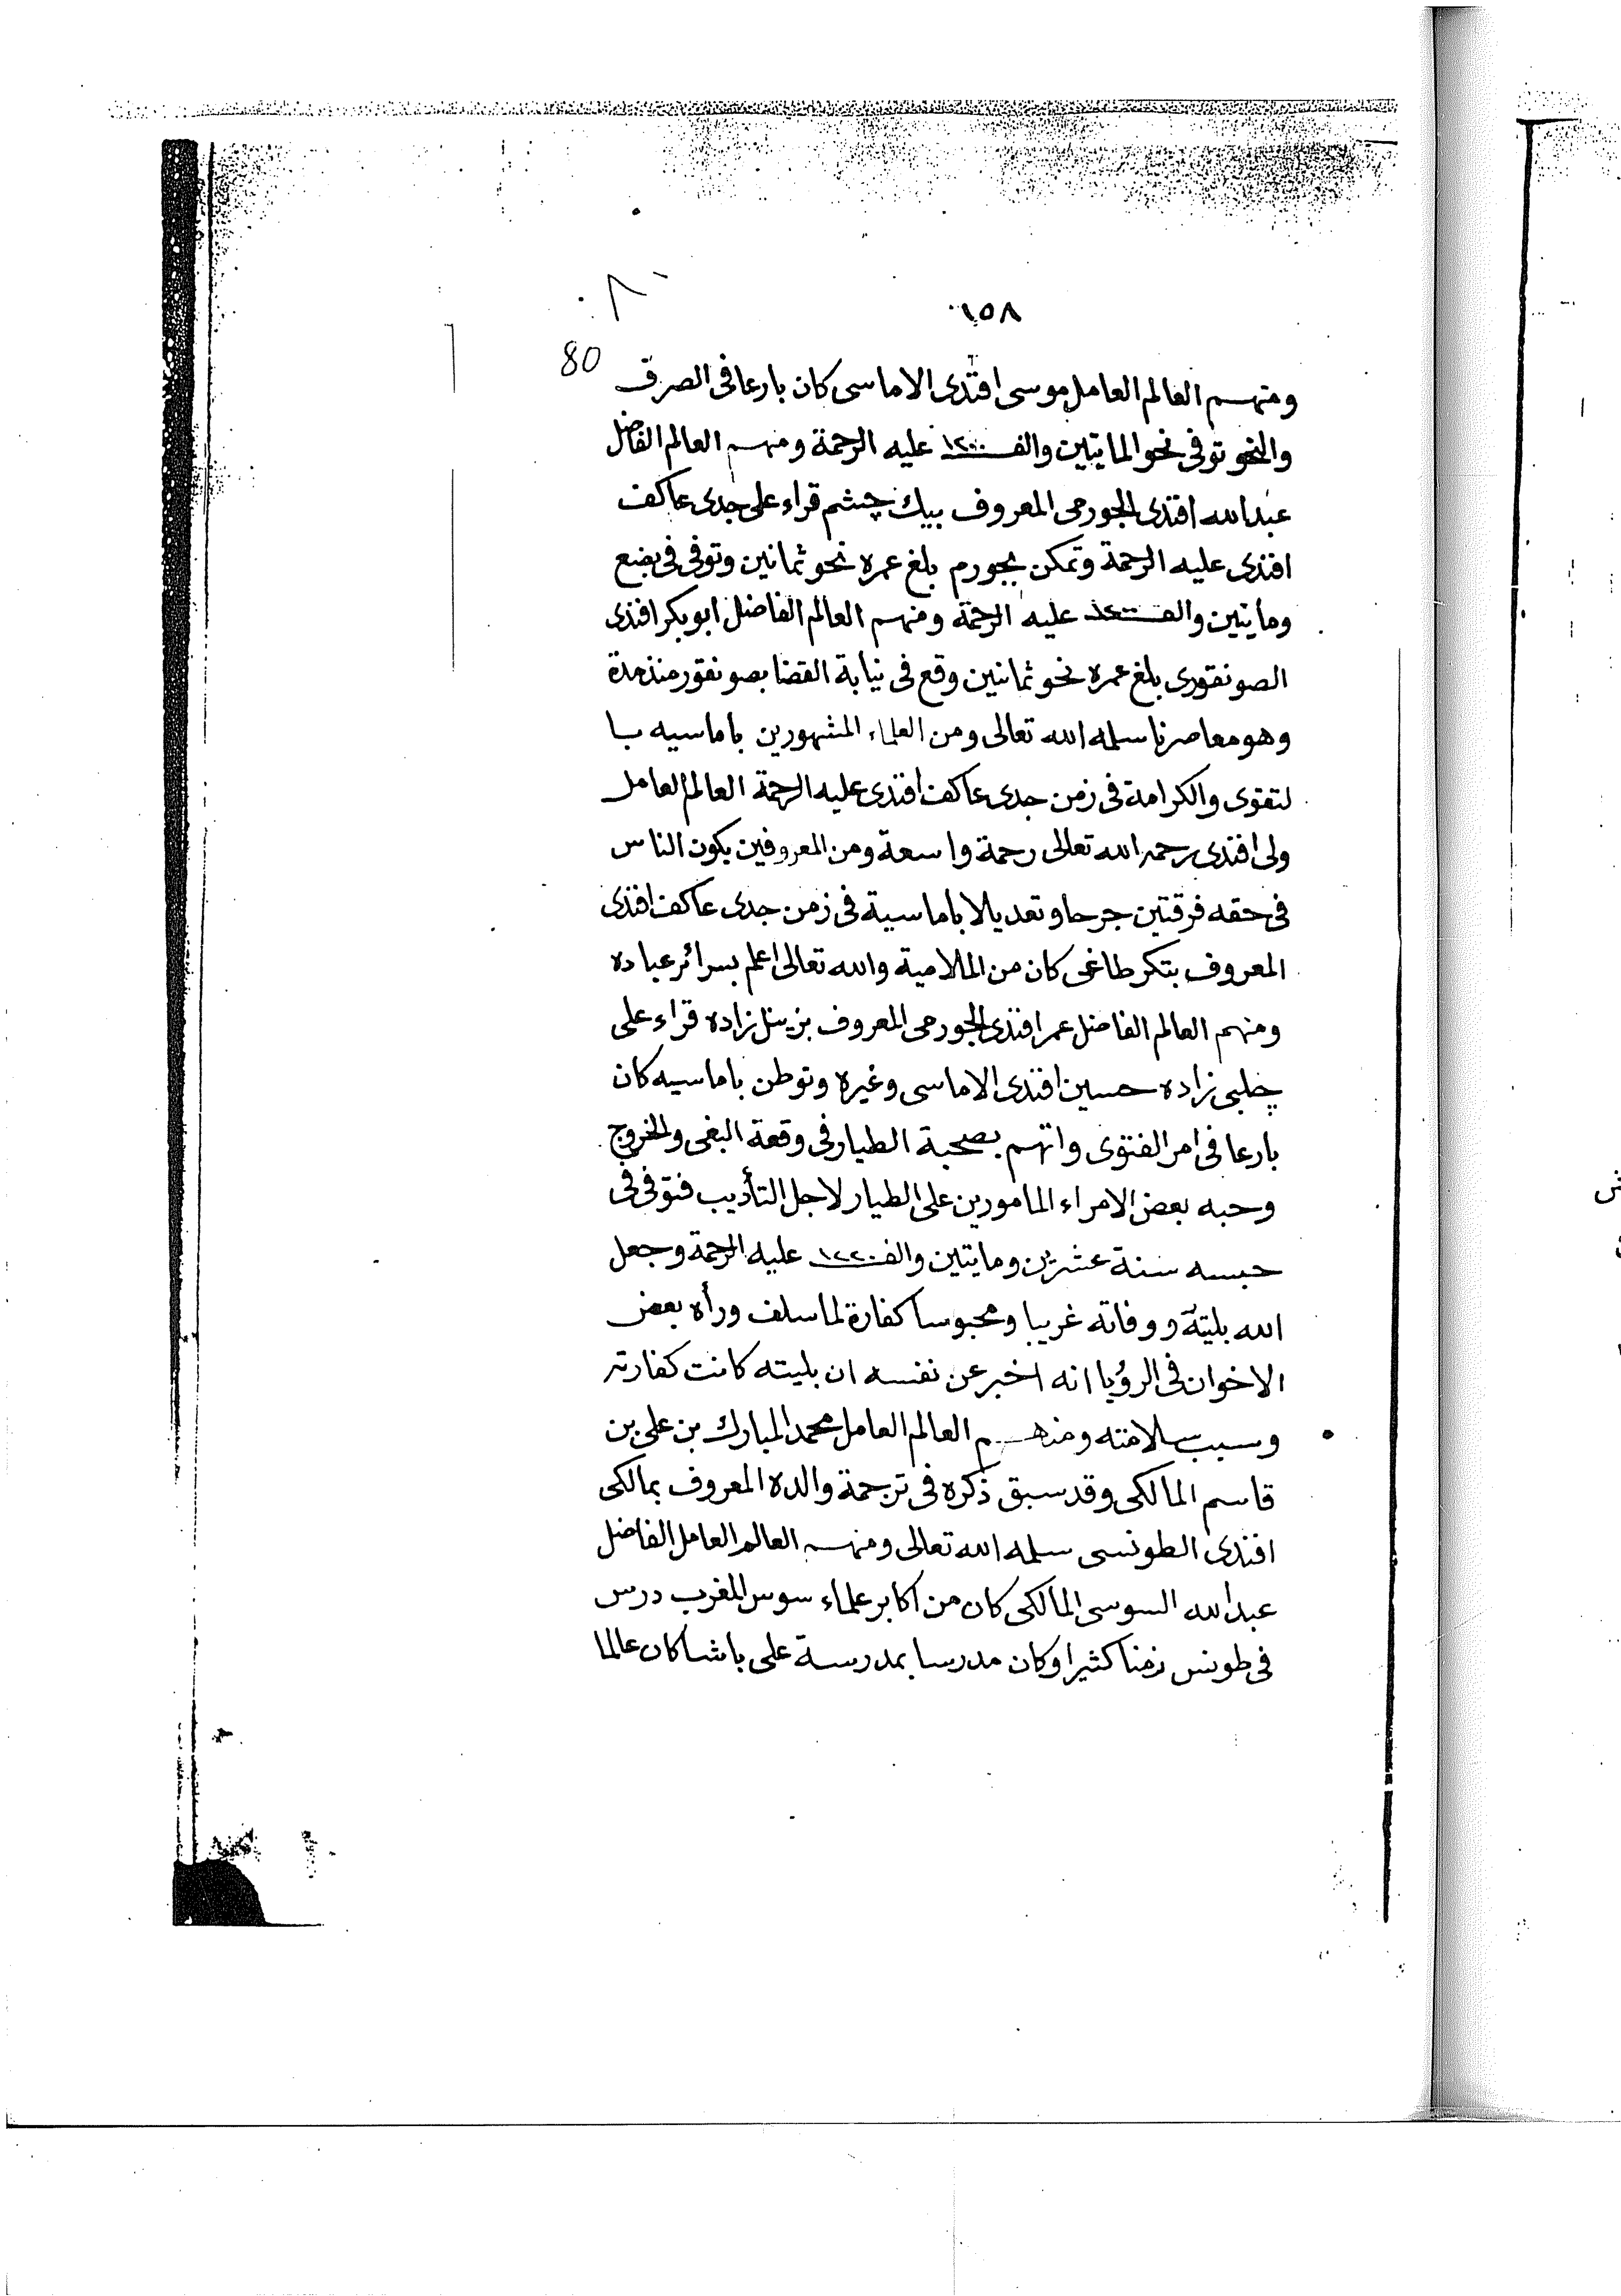 ١٥٨
80
ومنهم العالم العامل موسى افندى الاماسى كان بارعا فى الصرف
والنحو توفى نحو المايتين والف ١٢٠٠ عليه الرحمة ومنهم العالم الفاضل
عبدالله افندى الجورمى المعروف بيك چشم قراء على جدى عاكف
افندى عليه الرحمة وتمكن بجورم بلغ عمره نحو ثمانين وتوفى فى بضع
ومأيتين والف ١٢٠٠ عليه الرحمة ومنهم العالم الفاضل ابو بكر افندى
الصونقورى بلغ عمره نحو ثمانين وقع فى نيابة القضا بصونقور منذ مدة
وهو معاصرنا سلمه الله تعالى ومن العلماء المشهورين باماسيه با
لتقوى والكرامة فى زمن جدى عاكف افندى عليه الرحمة العالم العامل
ولى افندى رحمه الله تعالى رحمة واسعة ومن المعروفين بكون الناس
فى حقه فرقتين جرحا وتعديلا باماسية فى زمن جدى عاكف افندى
المعروف بتكر طاغى كان من الملامية والله تعالى اعلم بسرائر عباده
ومنهم العالم الفاضل عمر افندى الجورمى المعروف زاده قراء على
چلبى زاده حسين افندى الاماسى وغيره وتوطن باماسيه كان
بارعا فى امر الفتوى واتهم بصحبة الطيار فى وقعة البغى والخروج
وحبه بعض الامراء المامورين على الطيار لاجل التأديب فتوفى فى
حبسه سنة عشرين ومايتين والف ١٢٢٠ عليه الرحمة وجعل
الله بليته ووفاته غريبا ومحبوسا كفارة لما سلف ورأه بعض
الاخوان فى الرؤيا انه اخبر عن نفسه ان بليته كانت كفارته
وسبب سلامته ومنهم العالم العامل محمد المبارك بن على بن
قاسم المالكى وقد سبق ذكره فى ترجمة والده المعروف بمالكى
افندى الطونسى سلمه الله تعالى ومنهم العالم العامل الفاضل
عبدالله السوسى المالكى كان من اكابر علماء سوس المغرب درس
فى طونس زمنا كثيرا وكان مدرسا بمدرسة على باشا كان عالما